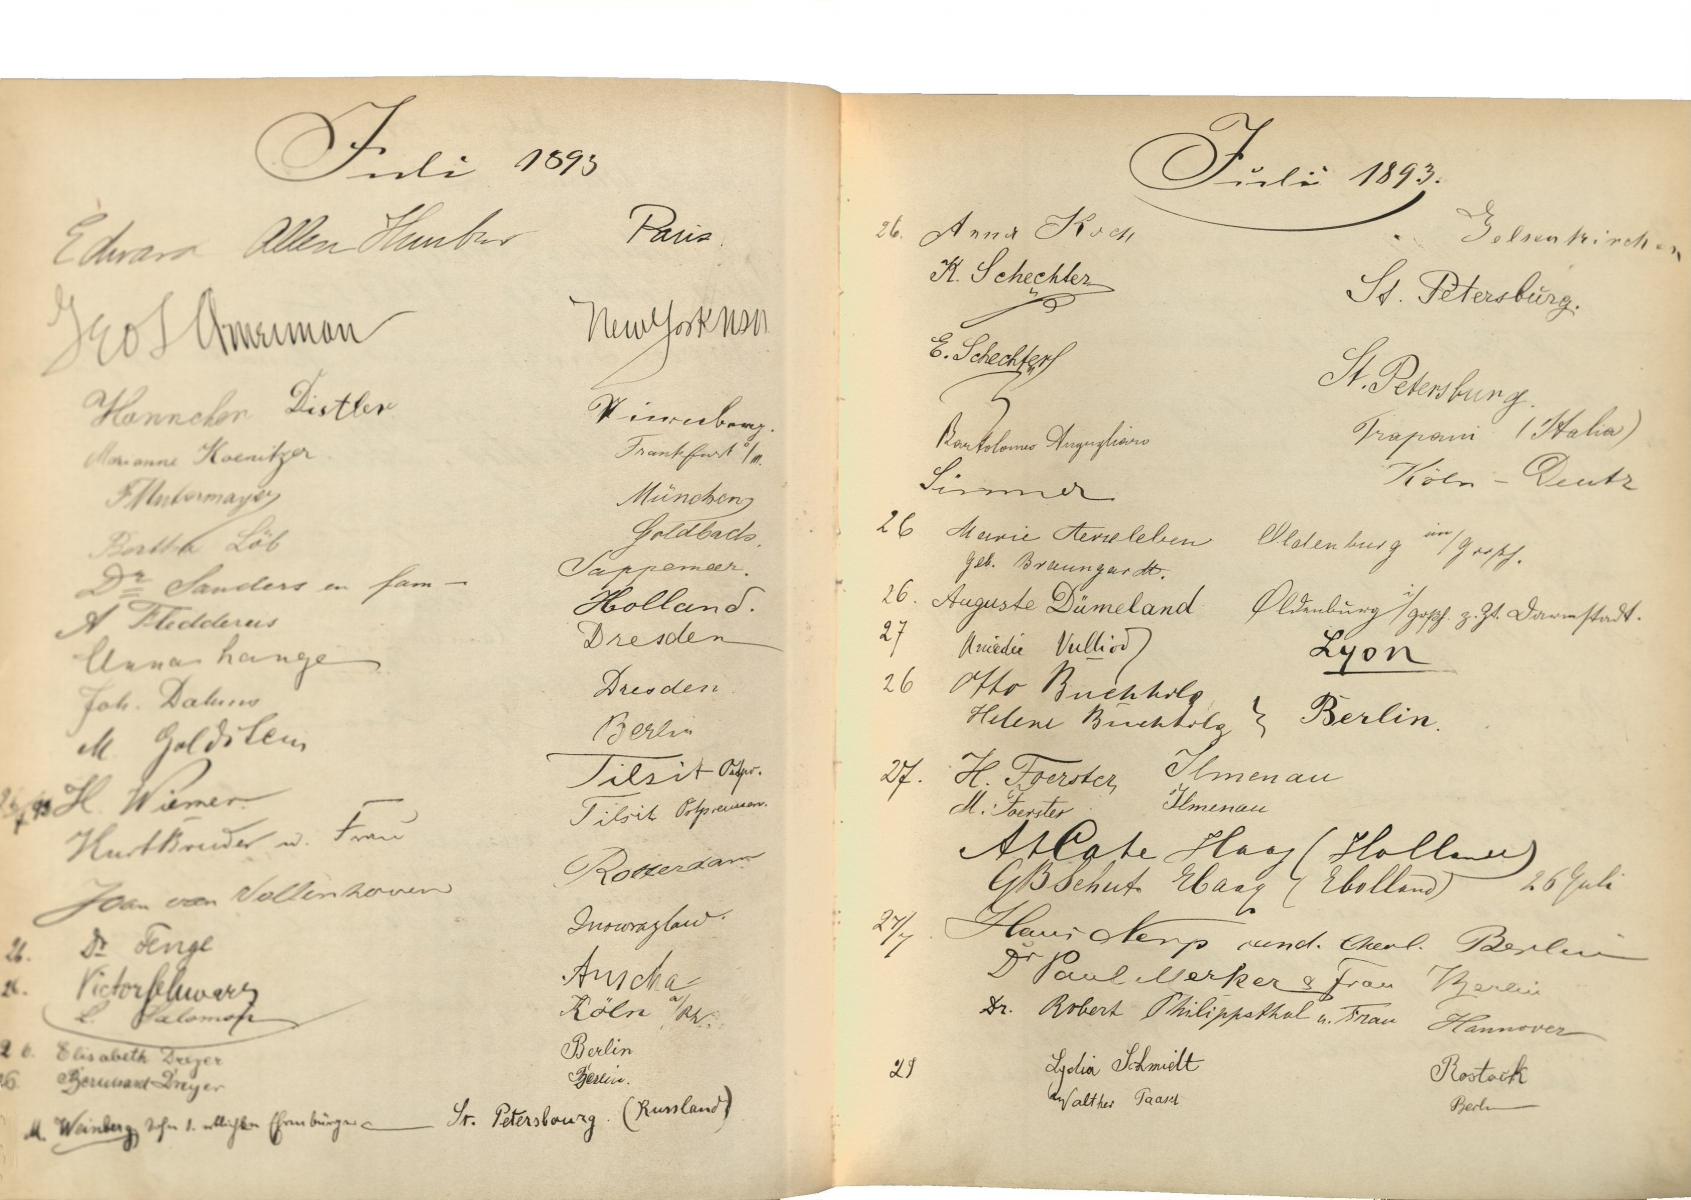 Juli 1893
Edward Allen Paris.
New York USA
Hannchen Distler Nürnberg.
Marianne Koenitzer Frankfurt a/M.
München
Bertha Löb Goldbach.
Dr Sanders en fam – Sappemeer.
A Fledderus Holland.
Anna Lange Dresden
Joh. Dresden.
M. Goldstein Berlin
H. Wiemer. Tilsit Ostpr.
Kurt Bruder u. Frau Tilsit Ostpreussen.
Joan van Vollenhoven Rotterdam
26. Dr Fenge Inowrazlaw.
26. Victor Schwarz Auscha
L. Salomon Köln a/Rh.
26. Elisabeth Dreyer Berlin
26. Bernhard Dreyer Berlin.
M. Weinberg St. Petersbourg. (Russland)
Juli 1893.
26. Anna Koch Gelsenkirchen
K. Schechter St. Petersburg.
E. Schechter St. Petersburg.
Bartolomeo Trapani (Italia)
Simmer Köln – Deutz
26 Marie Oldenburg im/Großh.
geb. Braungardt.
26. Auguste Dümeland Oldenburg i/Großh. z. Zt. Darmstadt.
27 Lyon
26 Otto Buchholz
Helene Buchholz } Berlin.
27. H. Foerster Ilmenau
M. Foerster Ilmenau
Haag (Holland)
GB Schut Haag (Holland) 26 Juli
27/7 Hans Nerp cand. chem. Berlin
Dr Paul Merker & Frau Berlin
Dr. Robert Philippsthal u. Frau Hannover
28 Lydia Schmidt Rostock
Walther Berlin